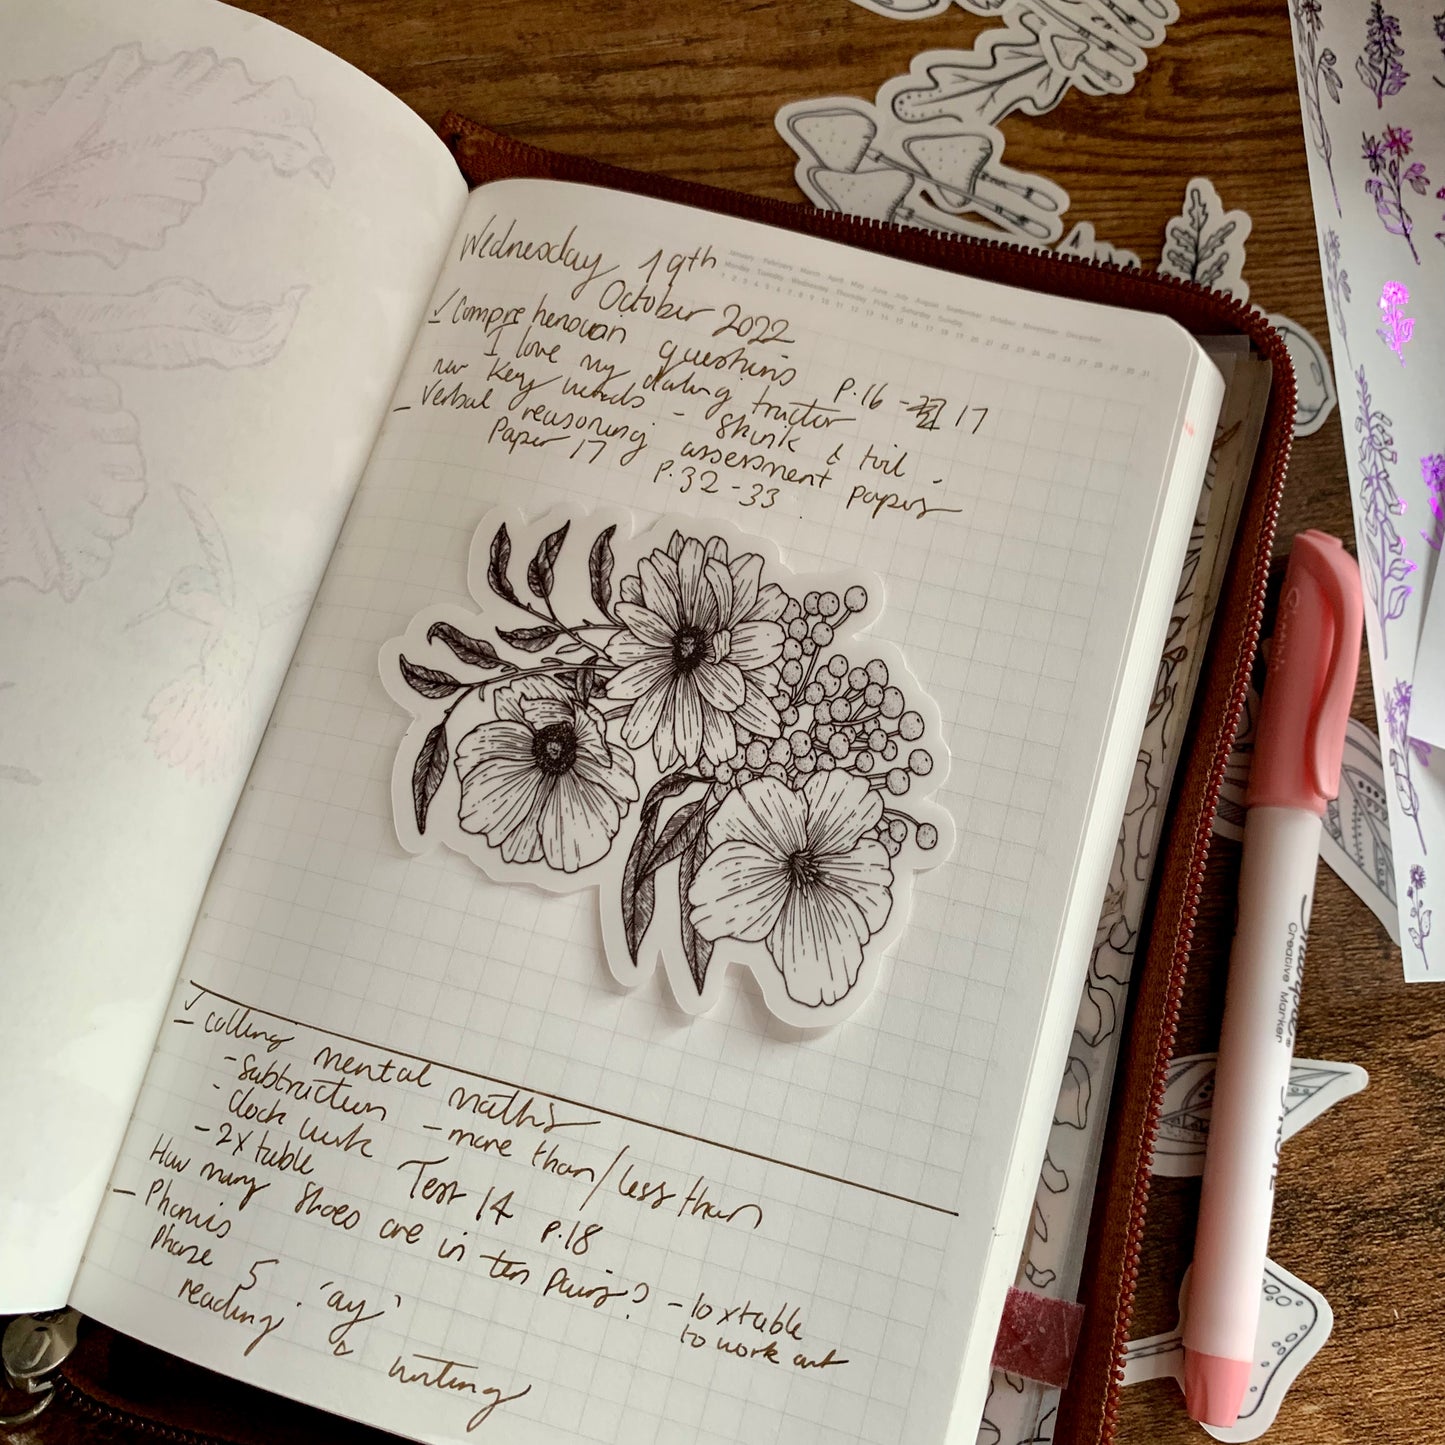 Wednesday 19th
October 2022
January February March April May June July August September October November December
Monday Tuesday Wednesday Thursday Friday Saturday Sunday
1 2 3 4 5 6 7 8 9 10 11 12 13 14 15 16 17 18 19 20 21 22 23 24 25 26 27 28 29 30 31
✓ Comprehension questions p.16 - 17
I love my darling tractor
new key words - shink & toil -
- Verbal reasoning assessment papers
Paper 17 p.32-33
✓ - Collins mental maths
- Subtraction - more than/less than
- clock work
- 2x table Test 14 p.18
How many shoes are in ten pairs? - 10 x table
to work out
- Phonics
Phase 5 'ay'
reading & writing
Creative Marker